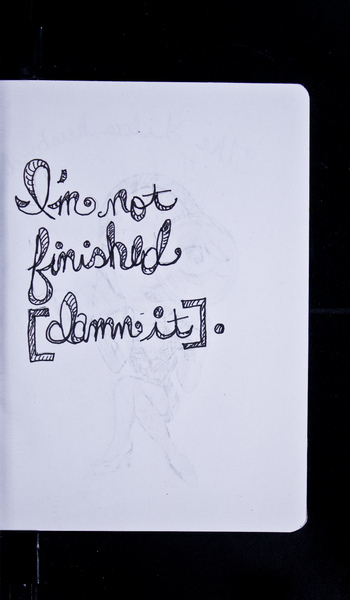 I'm not
finished
[damn it].